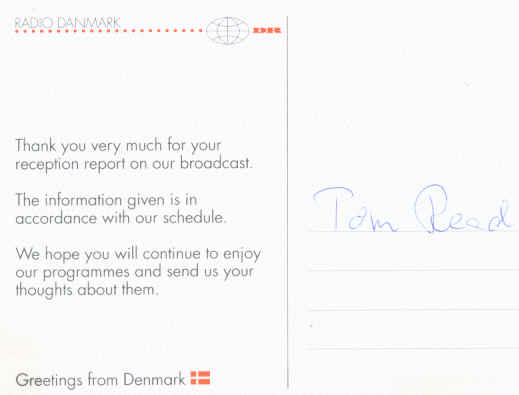 RADIO DANMARK
Thank you very much for your
reception report on our broadcast.
The information given is in
accordance with our schedule.
We hope you will continue to enjoy
our programmes and send us your
thoughts about them.
Greetings from Denmark
Tom Read